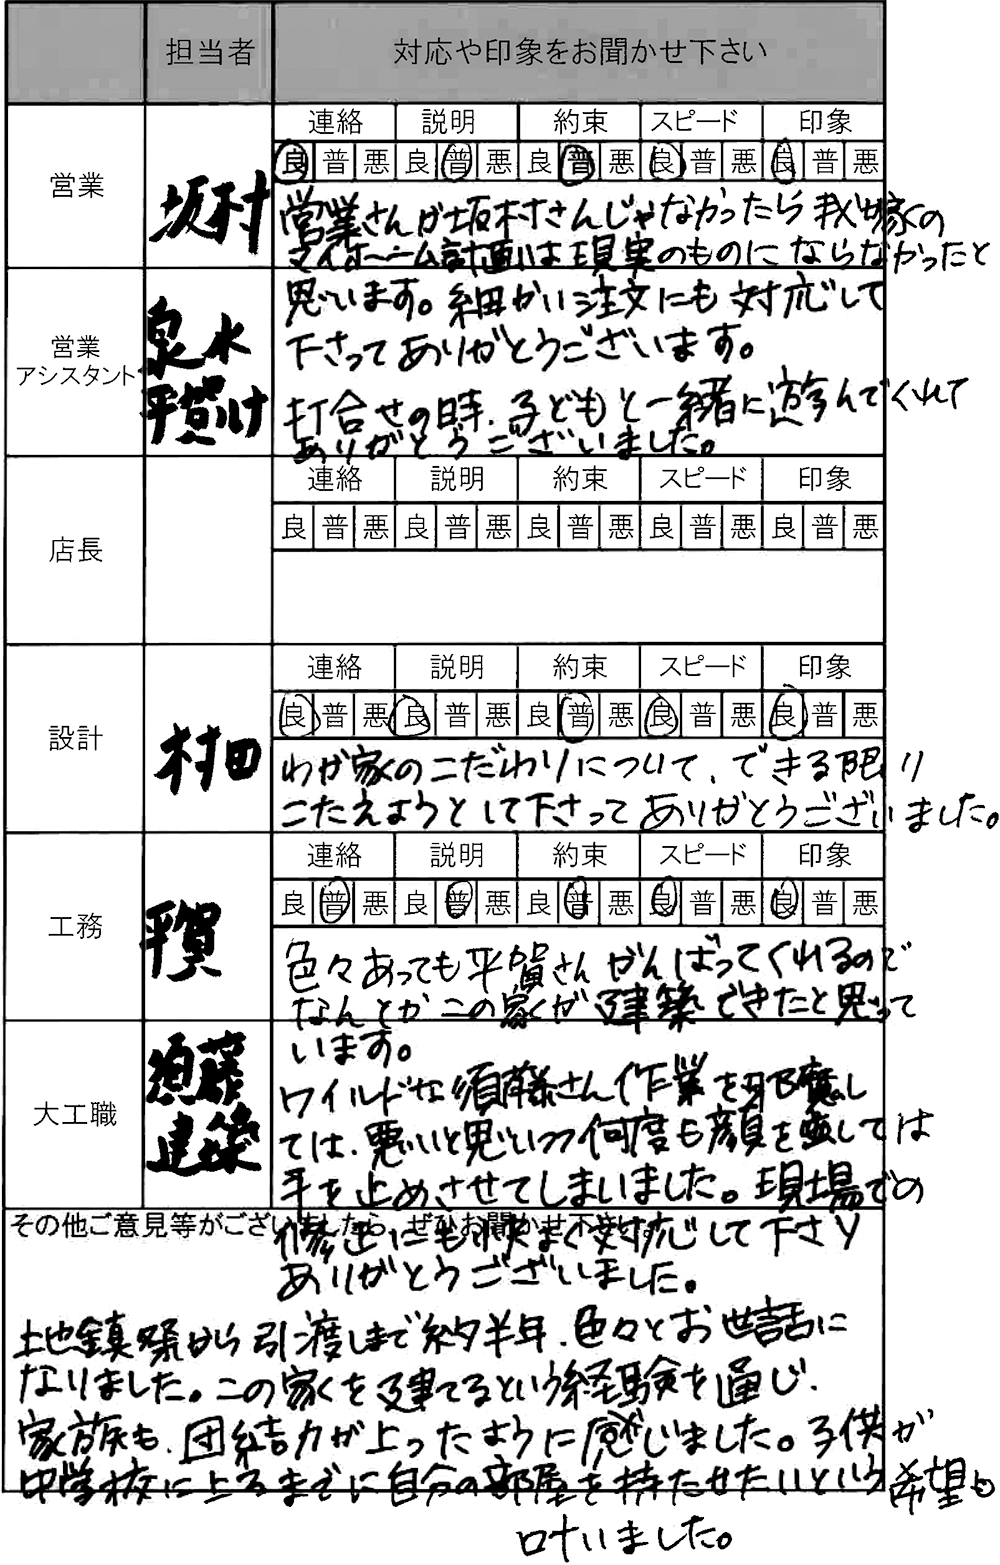 担当者 対応や印象をお聞かせ下さい
連絡 説明 約束 スピード 印象
良 普 悪 良 普 悪 良 普 悪 良 普 悪 良 普 悪
営業
坂村
営業さんが坂村さんじゃなかったら我が家の
マイホーム計画は現実のものにならなかったと
思います。細かい注文にも対応して
下さってありがとうございます。
営業
アシスタント
泉水
平賀
打合せの時、子どもと一緒に遊んでくれて
ありがとうございました。
連絡 説明 約束 スピード 印象
良 普 悪 良 普 悪 良 普 悪 良 普 悪 良 普 悪
店長
連絡 説明 約束 スピード 印象
良 普 悪 良 普 悪 良 普 悪 良 普 悪 良 普 悪
設計
村田
わが家のこだわりについて、できる限り
こたえようとして下さってありがとうございました。
連絡 説明 約束 スピード 印象
良 普 悪 良 普 悪 良 普 悪 良 普 悪 良 普 悪
工務
平賀
色々あっても平賀さんがんばってくれるので
なんとかこの家が建築できたと思って
います。
大工職
須藤
建築
ワイルドな須藤さん作業を邪魔し
ては、悪いと思いつつ何度も顔を出しては
手を止めさせてしまいました。現場での
その他ご意見等がございましたら、ぜひお聞かせ下さい
修正にも快よく対応して下さり
ありがとうございました。
地鎮祭から引渡しまで約半年、色々とお世話に
なりました。この家を建てるという経験を通じ、
家族も、団結力が上ったように感じました。子供が
中学校に上るまでに自分の部屋を持たせたいという希望も
叶いました。